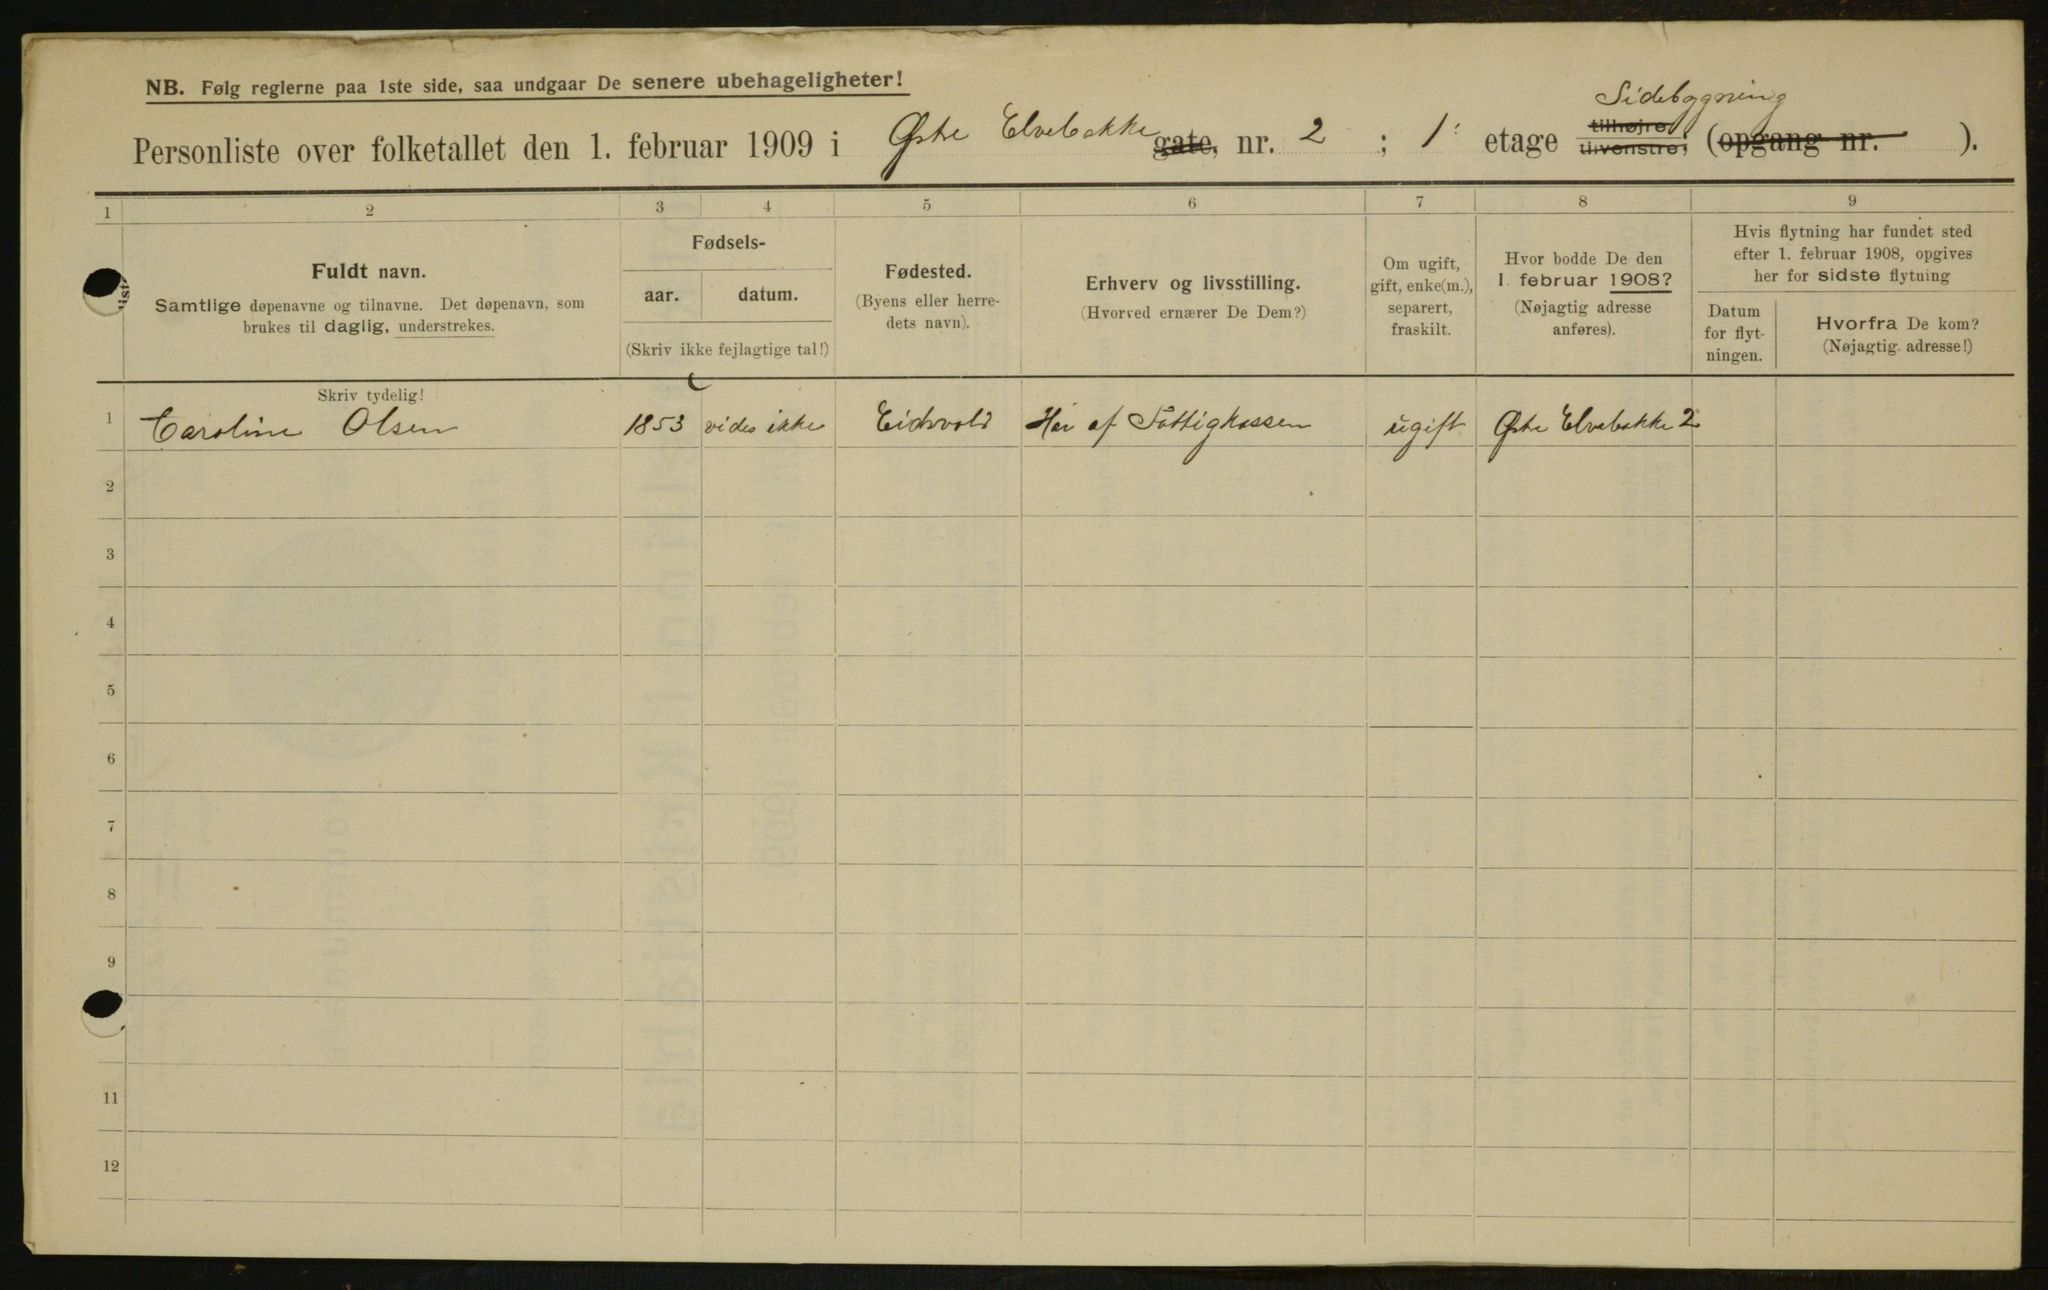 NB. Følg reglerne paa 1ste side, saa undgaar De senere ubehageligheter!
Sidebygning
Personliste over folketallet den 1. februar 1909 i Østre Elvebakke gate, nr. 2 ; 1. etage tilhøjre, tilvenstre, (opgang nr. ).
1 2 3 4 5 6 7 8 9
Fuldt navn.
Samtlige døpenavne og tilnavne. Det døpenavn, som
brukes til daglig, understrekes.
Skriv tydelig!
Fødsels-
aar. datum.
(Skriv ikke fejlagtige tal!)
Fødested.
(Byens eller herre-
dets navn).
Erhverv og livsstilling.
(Hvorved ernærer De Dem?)
Om ugift,
gift, enke(m.),
separert,
fraskilt.
Hvor bodde De den
1. februar 1908?
(Nøjagtig adresse
anføres).
Hvis flytning har fundet sted
efter 1. februar 1908, opgives
her for sidste flytning
Datum
for flyt-
ningen.
Hvorfra De kom?
(Nøjagtig adresse!)
1 Caroline Olsen 1853 vides ikke Eidsvold Hær af Fattigkassen ugift Østre Elvebakke 2
2
3
4
5
6
7
8
9
11
12